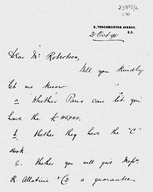 , THROGMORTON AVENUE,
E.C.
21 Oct
Dear Mr Robertson,
Will you kindly
let me know
a. Whether Paris can let you
have the
b. Whether they have the "C"
c. Whether you will give Messrs
R. Allatini & Co a guarantee